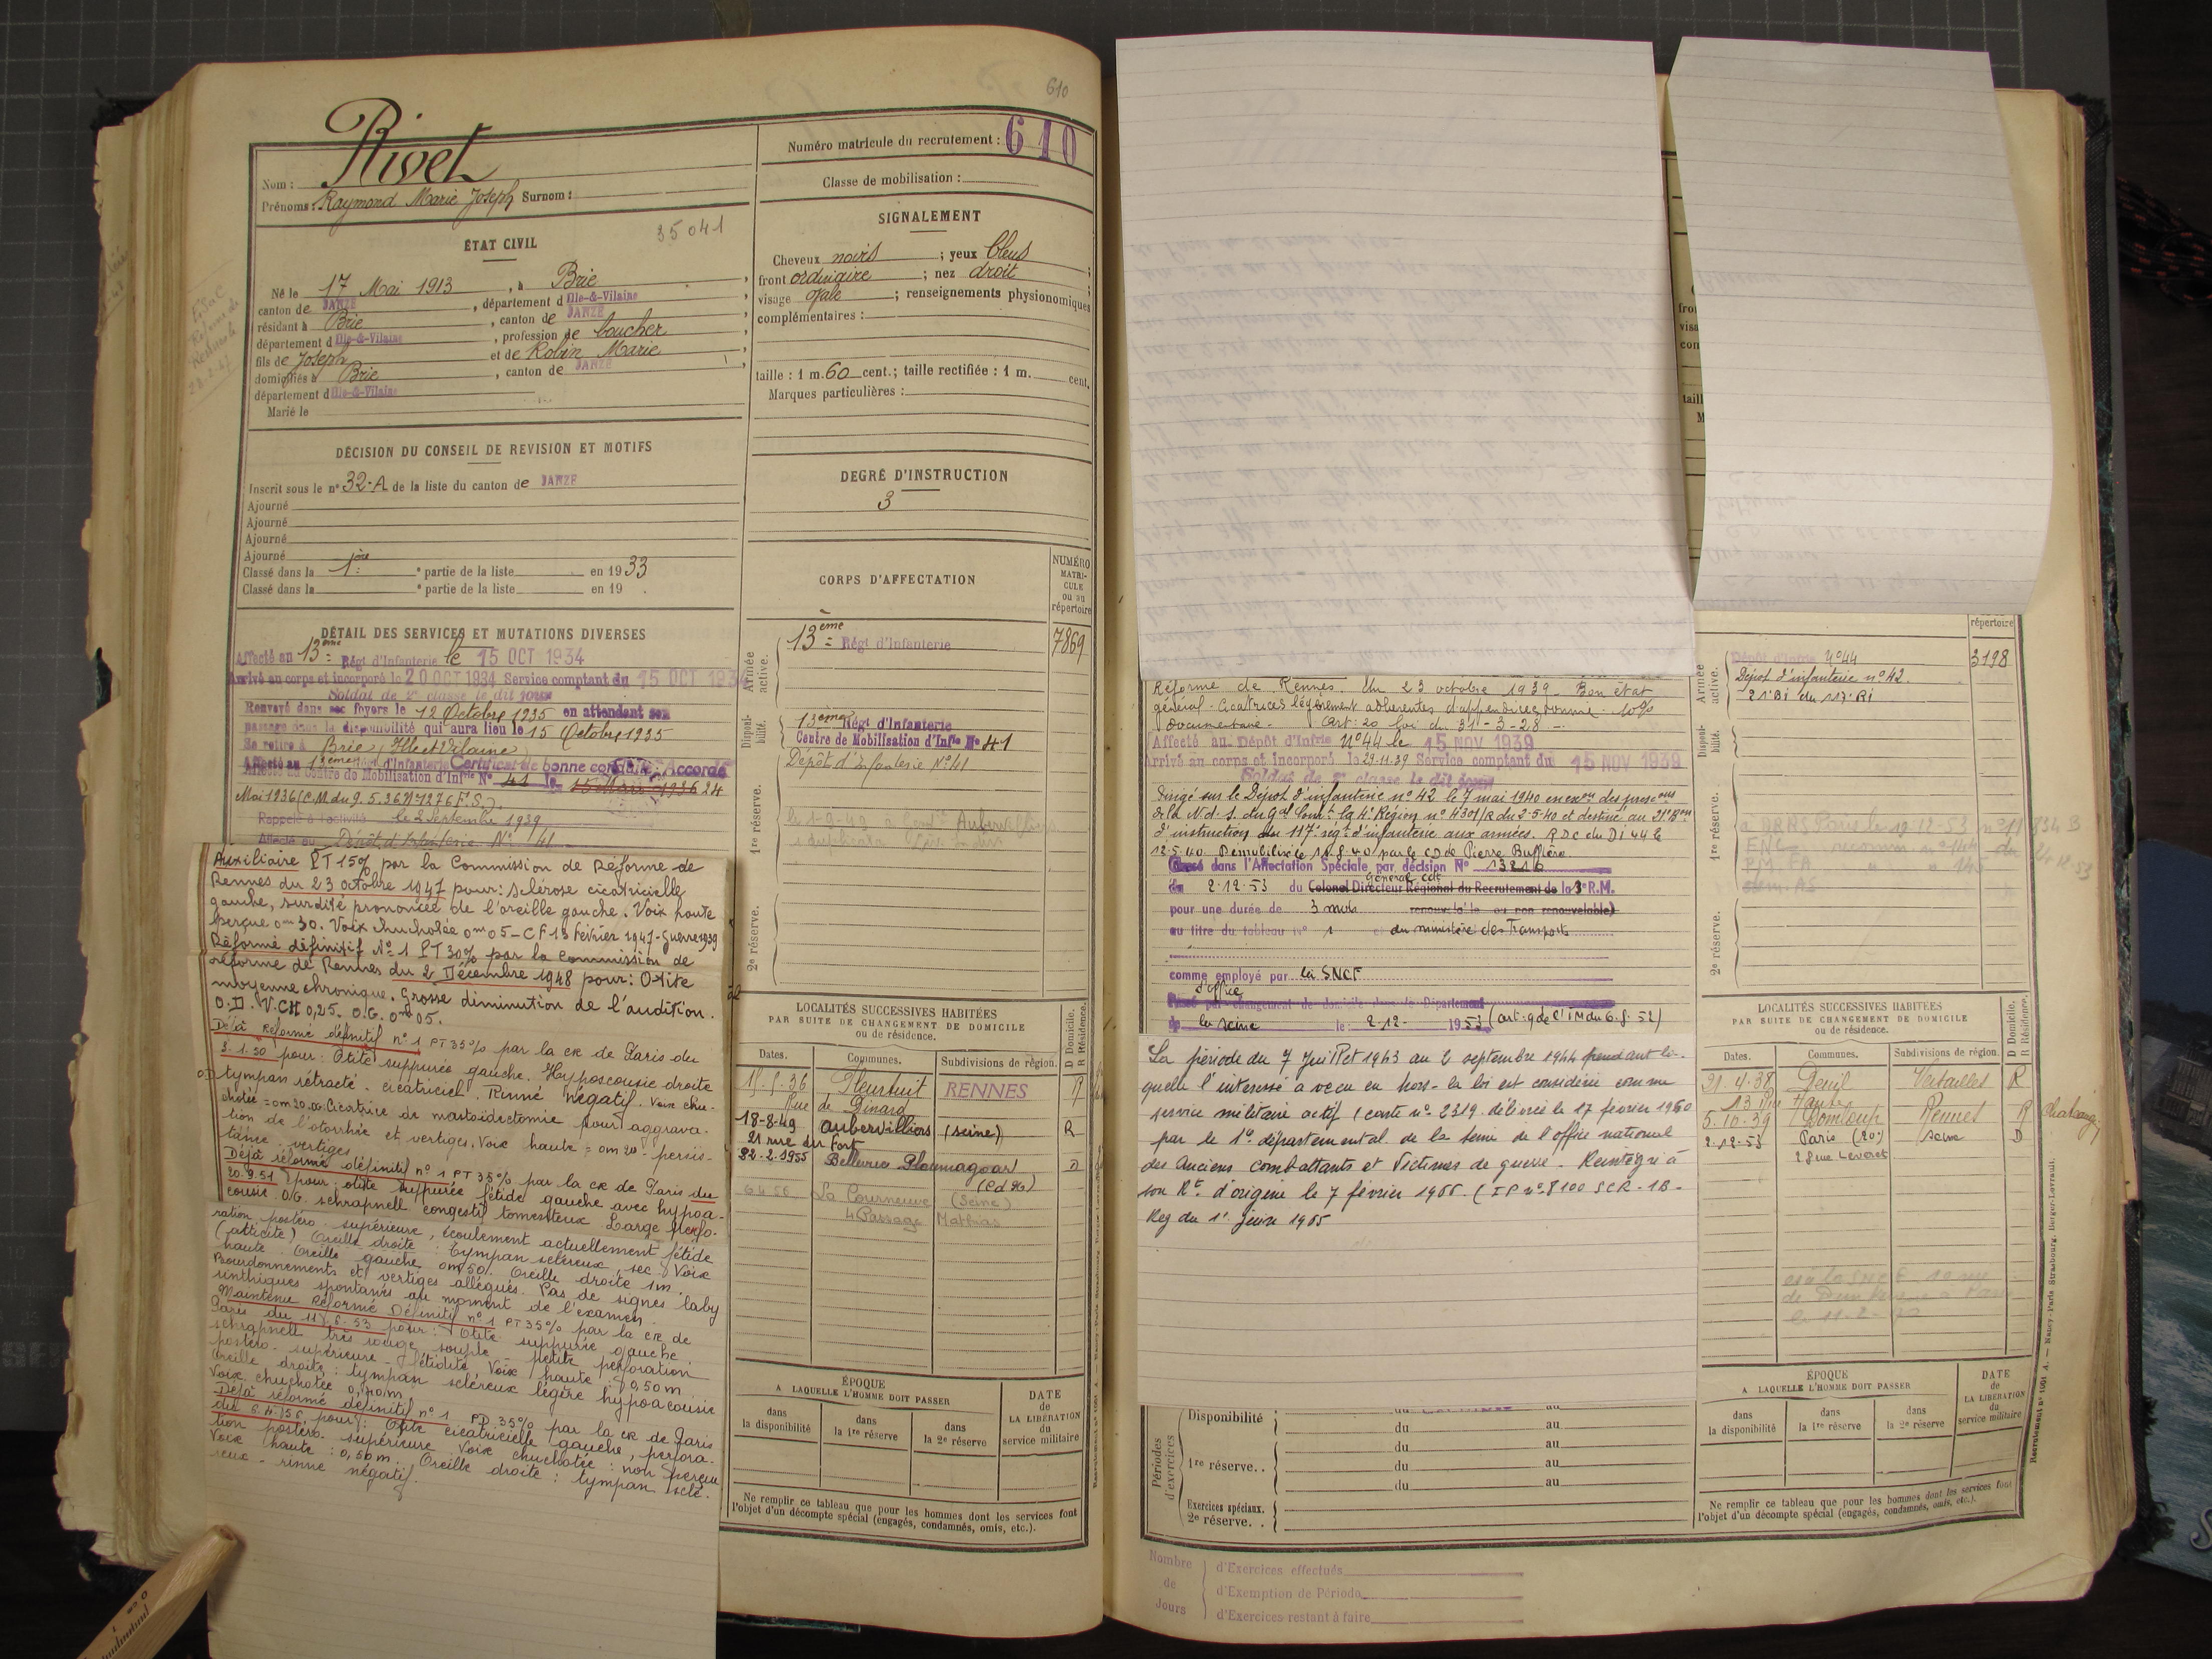 610
Rivet
Nom :
Prénoms : Raymond Marie Joseph Surnom :
Numéro matricule du recrutement : 610
Classe de mobilisation :
ÉTAT CIVIL
35041
Né le 17 Mai 1913, à Brie
canton de JANZÉ, département d Ille-&-Vilaine
résidant à Brie, canton de JANZÉ
département d Ille-&-Vilaine, profession de boucher
fils de Joseph et de Robin Marie
domiciliés à Brie, canton de JANZÉ
département d Ille-&-Vilaine
Marié le
SIGNALEMENT
Cheveux noirs ; yeux bleus
front ordinaire ; nez droit
visage ovale ; renseignements physionomiques
complémentaires :
taille : 1 m. 60 cent.; taille rectifiée : 1 m. cent.
Marques particulières :
DÉCISION DU CONSEIL DE REVISION ET MOTIFS
Inscrit sous le n° 32-A de la liste du canton de JANZÉ
Ajourné
Ajourné
Ajourné
Ajourné
Classé dans la 1ère partie de la liste en 1933
Classé dans la ° partie de la liste en 19
DEGRÉ D'INSTRUCTION
3
DÉTAIL DES SERVICES ET MUTATIONS DIVERSES
Affecté au 13ème Régt d'Infanterie le 15 OCT 1934
Arrivé au corps et incorporé le 20 OCT 1934 Service comptant du 15 OCT 1934
Soldat de 2e classe le dit jour
Renvoyé dans ses foyers le 12 Octobre 1935 en attendant son
passage dans la disponibilité qui aura lieu le 15 Octobre 1935
Se retire à Brie (Ille et Vilaine)
Affecté au 13ème Régt d'Infanterie Certificat de bonne conduite Accordé
Affecté au Centre de Mobilisation d'Infie N° 41 le 15 Mars 1936 24
Mai 1936 (C.M. du 9.5.36 N° 1276 F.S.).
Rappelé à l'activité le 2 Septembre 1939
Affecté au Dépôt d'Infanterie N° 41
CORPS D'AFFECTATION
NUMÉRO MATRICULE ou au répertoire
Armée active.
13ème Régt d'Infanterie
7869
Disponibilité.
13ème Régt d'Infanterie
Centre de Mobilisation d'Infie N° 41
Dépôt d'Infanterie N° 41
1re réserve.
2e réserve.
Auxiliaire PT 15% par la Commission de Réforme de
Rennes du 23 octobre 1947 pour : sclérose cicatricielle
gauche, surdité prononcée de l'oreille gauche. Voix haute
perçue 0m30. Voix chuchotée 0m05 - CF 13 Février 1947 - Guerre 1939
Réformé définitif N° 1 PT 30% par la Commission de
réforme de Rennes du 2 Décembre 1948 pour : Otite
moyenne chronique. Grosse diminution de l'audition.
O.D. V.CH 0,25. O.G. 0m05.
Déjà réformé définitif n° 1 PT 35% par la CR de Paris du
3.1.50 pour : Otite suppurée gauche. Hypoacousie droite
tympan rétracté - cicatriciel. Rinné négatif. Voix chu-
chotée = 0m20. Cicatrice de mastoidectomie pour aggrava-
tion de l'otorrhée et vertiges. Voix haute = 0m20 persis-
tance vertiges
Déjà réformé définitif n° 1 PT 35% par la CR de Paris du
20.9.51 pour : otite suppurée fétide gauche avec hypoa-
cousie. OG. schrapnell congestif tomenteux. Large perfo-
ration postéro-supérieure, écoulement actuellement fétide
(atticite) Oreille droite : tympan scléreux, sec. Voix
haute. Oreille gauche 0m50. Oreille droite 1m.
Bourdonnements et vertiges allégués. Pas de signes laby
rinthiques spontanés au moment de l'examen.
Maintenu Réformé Définitif n° 1 PT 35% par la CR de
Paris du 11.6.53 pour : Otite suppurée gauche
schrapnell très rouge souple - petite perforation
postéro-supérieure - fétidité. Voix haute : 0,50m
Oreille droite : tympan scléreux légère hypoacousie
Voix chuchotée
Déjà réformé définitif n° 1 PD 35% par la CR de Paris
du 6.4.56 pour : Otite cicatricielle gauche, perfora-
tion postéro-supérieure. Voix chuchotée : non perçue
Voix haute : 0,50m. Oreille droite : tympan sclé-
reux - rinne négatif.
LOCALITÉS SUCCESSIVES HABITÉES
PAR SUITE DE CHANGEMENT DE DOMICILE
ou de résidence.
Dates. Communes. Subdivisions de région. D Domicile. R Résidence.
15.5.36 Pleurtuit RENNES R
Rue de Dinard
18-8-49 Aubervilliers (Seine) R
21 rue du Fort
22.2.1955 Bellevue Ploumagoar D
(Cd 96)
6.4.56 La Courneuve (Seine)
4 Passage Mathias
ÉPOQUE
A LAQUELLE L'HOMME DOIT PASSER
dans la disponibilité
dans la 1re réserve
dans la 2e réserve
DATE de LA LIBÉRATION du service militaire
Ne remplir ce tableau que pour les hommes dont les services font
l'objet d'un décompte spécial (engagés, condamnés, omis, etc.).
Réforme de Rennes du 23 octobre 1939 - Bon état
général - Cicatrices légèrement adhérentes d'appendicectomie - 10%
Art : 20 loi du 31-3-28 -
Affecté au Dépôt d'Infrie N° 44 le 15 NOV 1939
Arrivé au corps et incorporé le 29-11-39 Service comptant du 15 NOV 1939
Soldat de 2e classe le dit jour
Dirigé sur le Dépôt d'infanterie n° 42 le 7 mai 1940 en exon des presons
de la N.d.S. du Gal Comt la 4e Région n° 4301/R du 2-5-40 et destiné au 21e Bon
d'instruction du 117e régt d'infanterie aux armées. RDC du DI 44 le
12-5-40 Démobilisé le 18.8.40 par le CD de Pierre Buffière
Classé dans l'Affectation Spéciale par décision N° 13216
du 2-12-53 du Colonel Directeur Régional du Recrutement de la 3e R.M.
Général Cdt
pour une durée de 3 mois renouvelable ou non renouvelable)
au titre du tableau n° 1 du ministère des Transports
comme employé par la SNCF
d'office
Passé par changement de domicile dans le Département
de la Seine le 2-12-1953 (art. 9 de l'IM du 6.8.52)
La période du 7 Juillet 1943 au 2 septembre 1944 pendant la-
quelle l'intéressé a vécu en hors-la loi est considérée comme
service militaire actif (carte n° 2319 délivrée le 17 février 1960
par le 1° départemental de la Seine de l'office national
des Anciens combattants et Victimes de guerre. Réintégré à
son Rt d'origine le 7 février 1966. (IP n° 8100 SCR-1B-
Reg du 1er Juin 1965
Périodes d'exercices
Disponibilité du au
du au
1re réserve.. du au
du au
Exercices spéciaux.
2e réserve..
Nombre de Jours
d'Exercices effectués
d'Exemption de Période
d'Exercices restant à faire
répertoire
Armée active.
Dépôt d'Infrie N° 44
3198
Dépôt d'infanterie n° 42.
21e BI du 117e RI
Disponibilité.
1re réserve.
2e réserve.
LOCALITÉS SUCCESSIVES HABITÉES
PAR SUITE DE CHANGEMENT DE DOMICILE
ou de résidence.
Dates. Communes. Subdivisions de région. D Domicile. R Résidence.
21.4.38 Deuil Versailles R
5.10.39 Domloup Rennes R
2-12-53 Paris (20e) Seine D
28 rue Levert
ÉPOQUE
A LAQUELLE L'HOMME DOIT PASSER
dans la disponibilité
dans la 1re réserve
dans la 2e réserve
DATE de LA LIBÉRATION du service militaire
Ne remplir ce tableau que pour les hommes dont les services font
l'objet d'un décompte spécial (engagés, condamnés, omis, etc.).